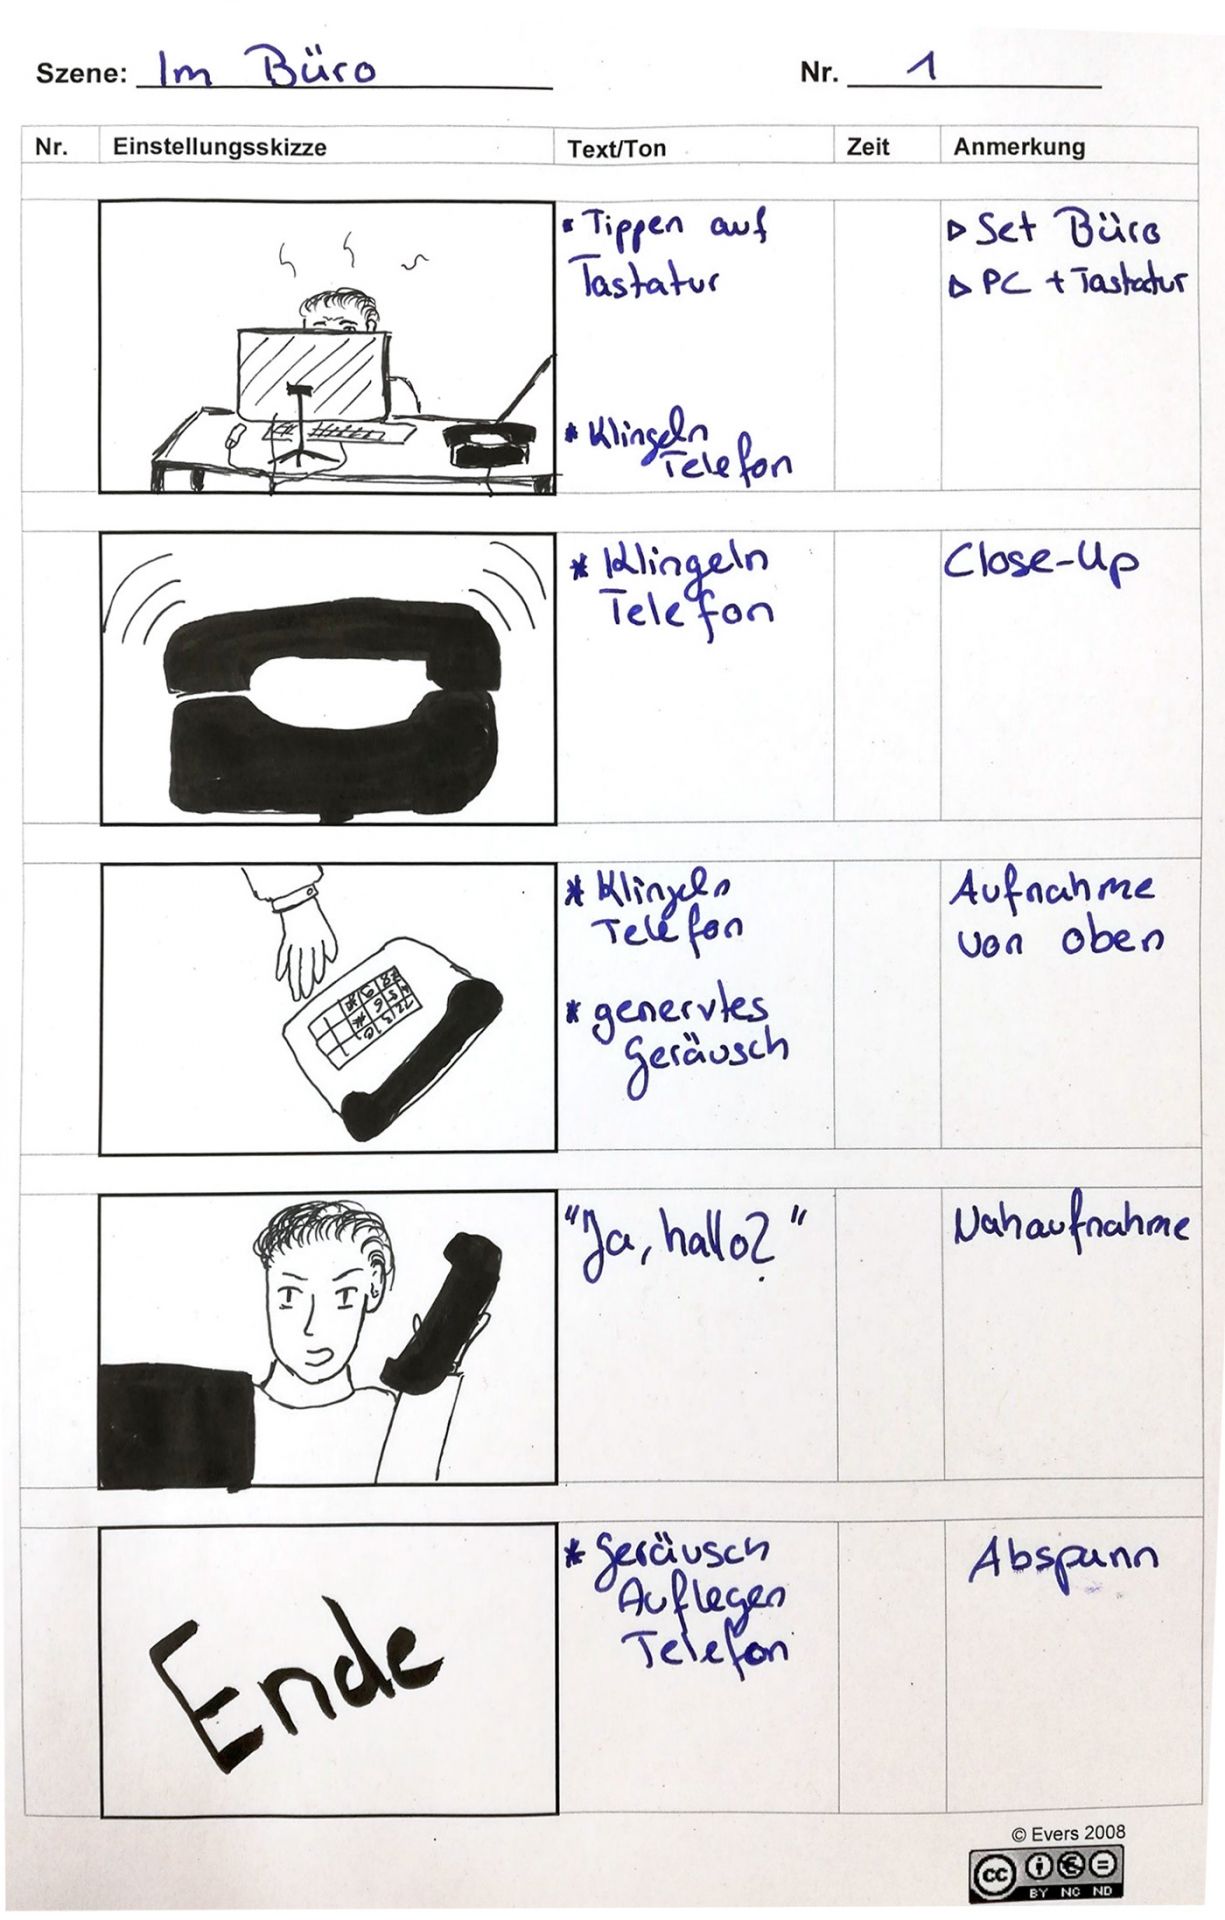 Szene: Im Büro Nr. 1
Nr. Einstellungsskizze Text/Ton Zeit Anmerkung
* Tippen auf
Tastatur
* Klingeln
Telefon
▷ Set Büro
▷ PC + Tastatur
* Klingeln
Telefon
Close-Up
* Klingeln
Telefon
* genervtes
Geräusch
Aufnahme
von oben
"Ja, hallo?"
Nahaufnahme
Ende
* Geräusch
Auflegen
Telefon
Abspann
© Evers 2008
cc
BY NC ND